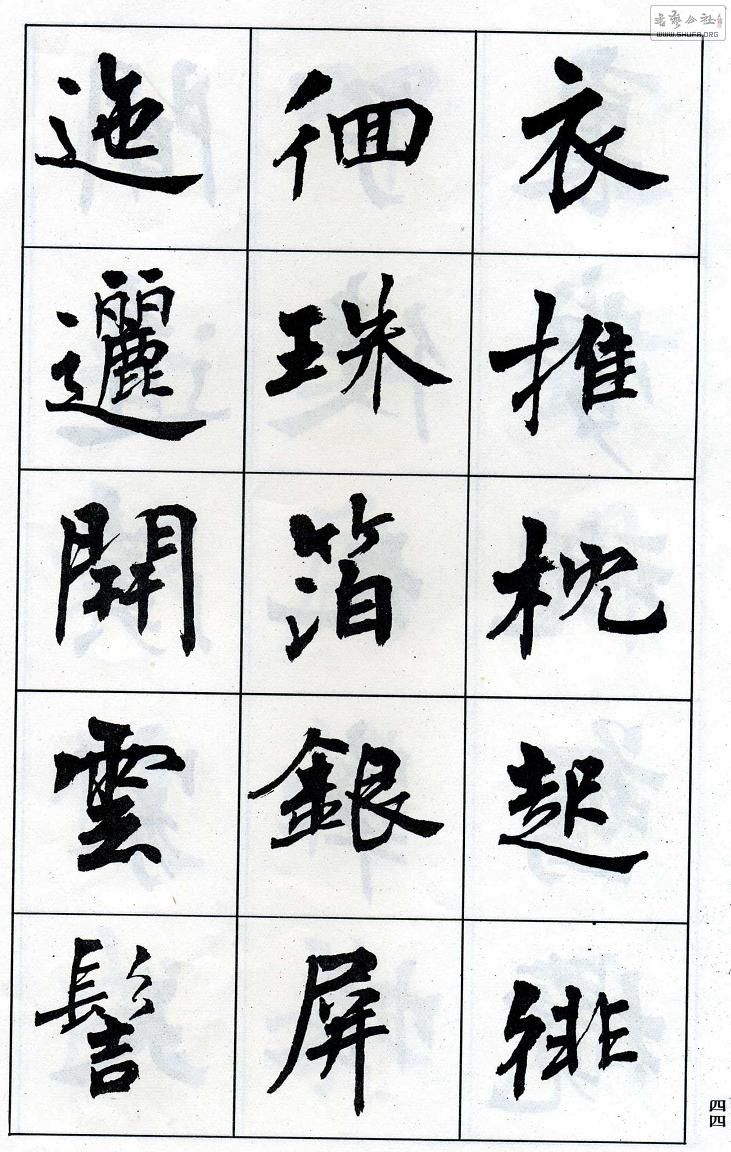 衣推枕起徘
徊珠箔銀屏
迤邐開雲髻
四四
書藝公社
WWW.SHUFA.ORG